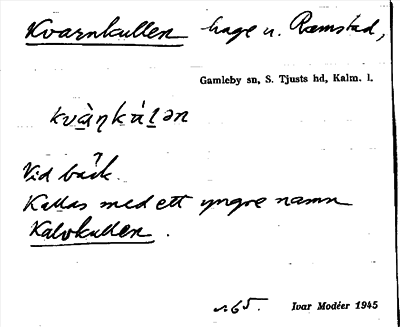 Kvarnkullen hage u. Ramstad,
Gamleby sn, S. Tjusts hd, Kalm. l.
kvà̱ŋká̱lən
Vid bäck.
Kallas med ett yngre namn
Kalvkullen.
s. 65. Ivar Modéer 1945